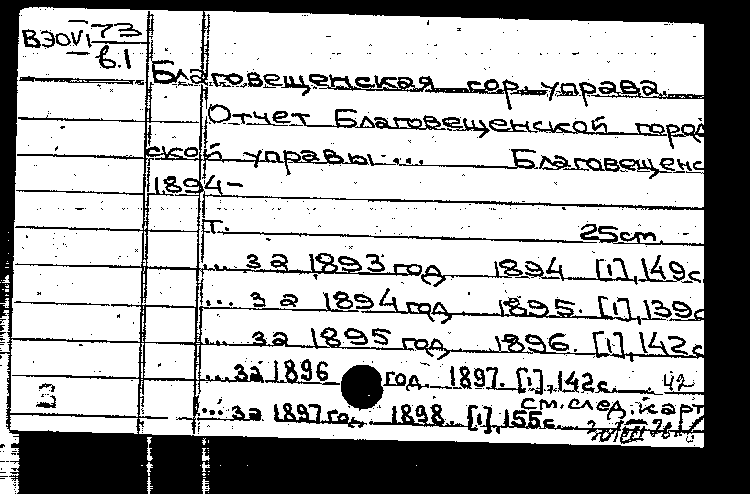 ВЭОVI 73
в.1
Благовещенская гор. управа.
Отчет Благовещенской город
ской управы... Благовещенс
1894-
т. 25см.
... за 1893 год 1894. [1], 149с
... за 1894 год 1895. [1], 139с
... за 1895 год 1896. [1], 142с
... за 1896 год. 1897. [1], 142с. 42
см. след. карт
... за 1897 год 1898. [1], 155с.